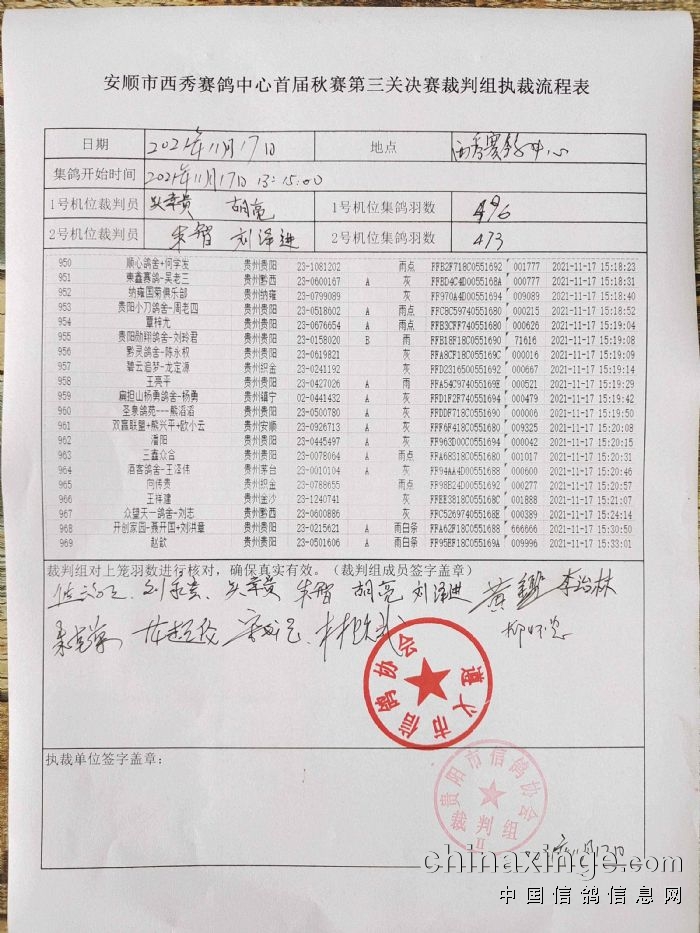 安顺市西秀赛鸽中心首届秋赛第三关决赛裁判组执裁流程表
日期 2021年11月17日 地点 西秀赛鸽中心
集鸽开始时间 2021年11月17日 13:15:00
1号机位裁判员 胡亮 1号机位集鸽羽数 496
2号机位裁判员 朱智 刘泽进 2号机位集鸽羽数 473
950 顺心鸽舍+何学发 贵州贵阳 23-1081202 雨点 FFB2F718C0551692 001777 2021-11-17 15:18:23
951 東鑫赛鸽-吴老三 贵州黔西 23-0600167 A 灰 FFED4C4D0055168A 000777 2021-11-17 15:18:31
952 纳雍国菊俱乐部 贵州纳雍 23-0799089 灰 FF970A4D00551694 009089 2021-11-17 15:18:40
953 贵阳小刀鸽舍-周老四 贵州贵阳 23-0518602 A 雨点 FFC8C59740551680 000215 2021-11-17 15:18:52
954 覃梓尤 贵州贵阳 23-0676654 A 雨点 FFB3CFF740551680 000626 2021-11-17 15:19:04
955 贵阳勋翔鸽舍-刘羚君 贵州贵阳 23-0158020 B 雨 FFB18F18C0551690 71616 2021-11-17 15:19:08
956 黔灵鸽舍-陈永权 贵州贵阳 23-0619821 灰 FFA8CF18C055169C 000016 2021-11-17 15:19:09
957 碧云追梦-龙定源 贵州织金 23-0241192 灰 FFD2316500551692 000667 2021-11-17 15:19:14
958 王亮平 贵州贵阳 23-0427026 A 雨 FFA54C974055169E 000521 2021-11-17 15:19:29
959 扁担山杨勇鸽舍-杨勇 贵州镇宁 02-0441432 A 灰 FFD1F2F740551694 000479 2021-11-17 15:19:42
960 圣泉鸽苑---熊滔滔 贵州贵阳 23-0500780 A 灰 FFDDF718C0551690 000006 2021-11-17 15:19:50
961 双赢联盟+熊兴平+欧小云 贵州安顺 23-0926713 A 灰 FFF6F418C0551680 009325 2021-11-17 15:20:08
962 潘阳 贵州贵阳 23-0445497 A 灰 FF963D00C0551694 000042 2021-11-17 15:20:15
963 三鑫众合 贵州贵阳 23-0078064 A 雨点 FFA68318C0551680 001017 2021-11-17 15:20:31
964 酒客鸽舍-王泽伟 贵州茅台 23-0010104 A 灰 FF94AA4D00551688 000600 2021-11-17 15:20:46
965 向传贵 贵州织金 23-0788655 雨点 FF98B24D00551692 000277 2021-11-17 15:20:57
966 王祥建 贵州金沙 23-1240741 灰 FFEE3818C055168C 001888 2021-11-17 15:21:07
967 众望天一鸽舍-刘志 贵州黔西 23-0600886 A 灰 FFC526974055168E 000389 2021-11-17 15:24:14
968 开创家园-聂开国+刘洪章 贵州贵阳 23-0215621 A 雨白条 FFA62F18C0551688 666666 2021-11-17 15:30:50
969 赵歆 贵州贵阳 23-0501606 A 雨白条 FF95EF18C055169A 009996 2021-11-17 15:33:01
裁判组对上笼羽数进行核对，确保真实有效。（裁判组成员签字盖章）
朱智 胡亮 刘泽进 李治林
遵义市信鸽协会
执裁单位签字盖章：
贵阳市信鸽协会
裁判组
II
chinaxinge.com
中国信鸽信息网